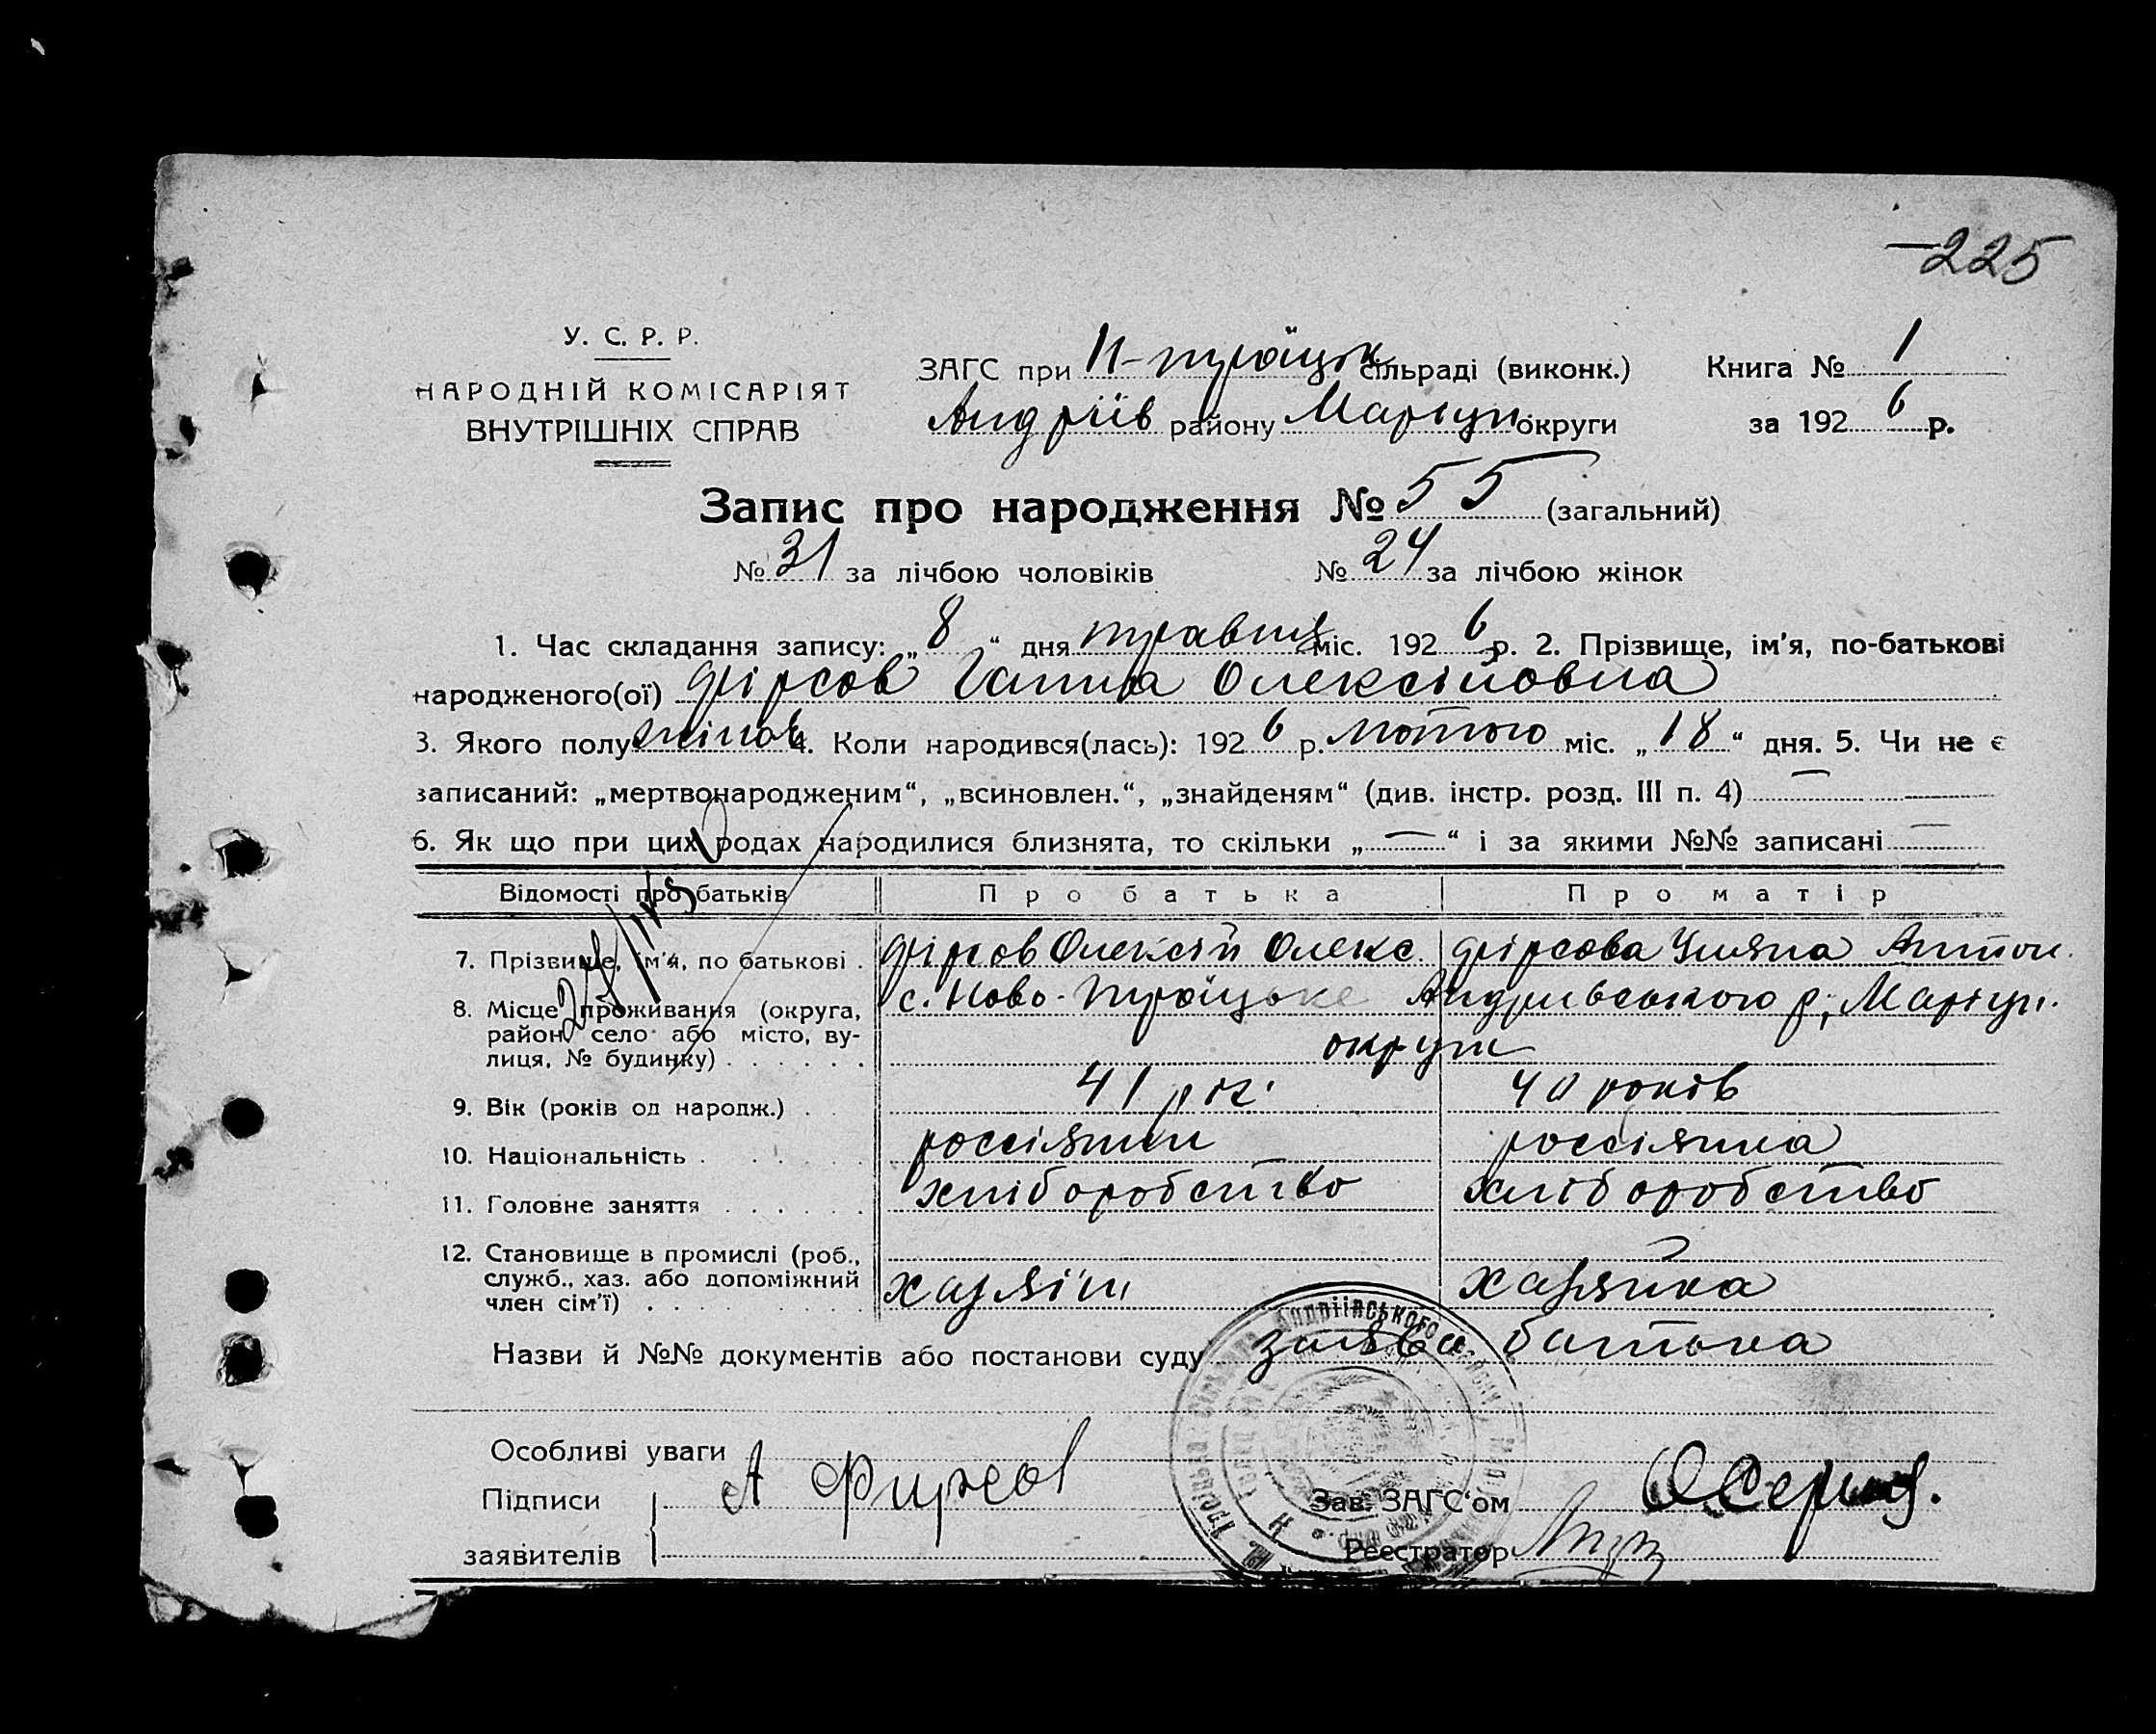 225
У. С. Р. Р.
НАРОДНІЙ КОМІСАРІЯТ
ВНУТРІШНІХ СПРАВ
ЗАГС при Н-Троїцьк сільраді (виконк.) Книга № 1
Андріїв району Маріуп округи за 1926 р.
Запис про народження № 55 (загальний)
№ 31 за лічбою чоловіків № 24 за лічбою жінок
1. Час складання запису: „8“ дня травня міс. 1926 р. 2. Прізвище, ім'я, по-батькові
народженого(ої) Фірсов Ганна Олексійовна
3. Якого полу жіноч 4. Коли народився(лась): 1926 р. лютого міс. „18“ дня. 5. Чи не є
записаний: „мертвонародженим“, „всиновлен.“, „знайденям“ (див. інстр. розд. III п. 4) —
6. Як що при цих родах народилися близнята, то скільки „—“ і за якими №№ записані —
Відомості про батьків Про батька Про матір
7. Прізвище, ім'я, по батькові . Фірсов Олексій Олекс. Фірсова Уляна Антон.
8. Місце проживання (округа, район, село або місто, вулиця, № будинку) . . . . . . с. Ново-Троїцьке Андріївського р, Маріуп.
округи
9. Вік (років од народж.) . . 41 рік. 40 років
10. Національність . . . . . россіянин россіянка
11. Головне заняття . . . . . . хліборобство хліборобство
12. Становище в промислі (роб., служб., хаз. або допоміжний член сім'ї) . . . . . . . . хазяїн хазяйка
Назви й №№ документів або постанови суду заява батька
Особливі уваги
Підписи А Фирсов Зав. ЗАГС'ом
заявителів Реєстратор